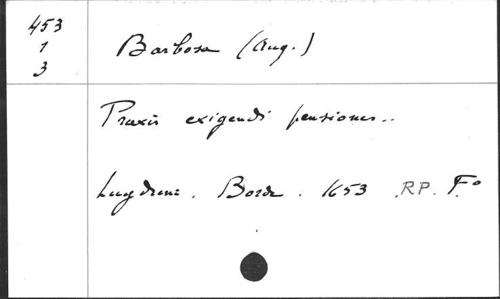 453
1
3
Barbosa (Aug.)
Praxis exigendi pensiones..
Lugduni. Borde. 1653 .RP. Fº